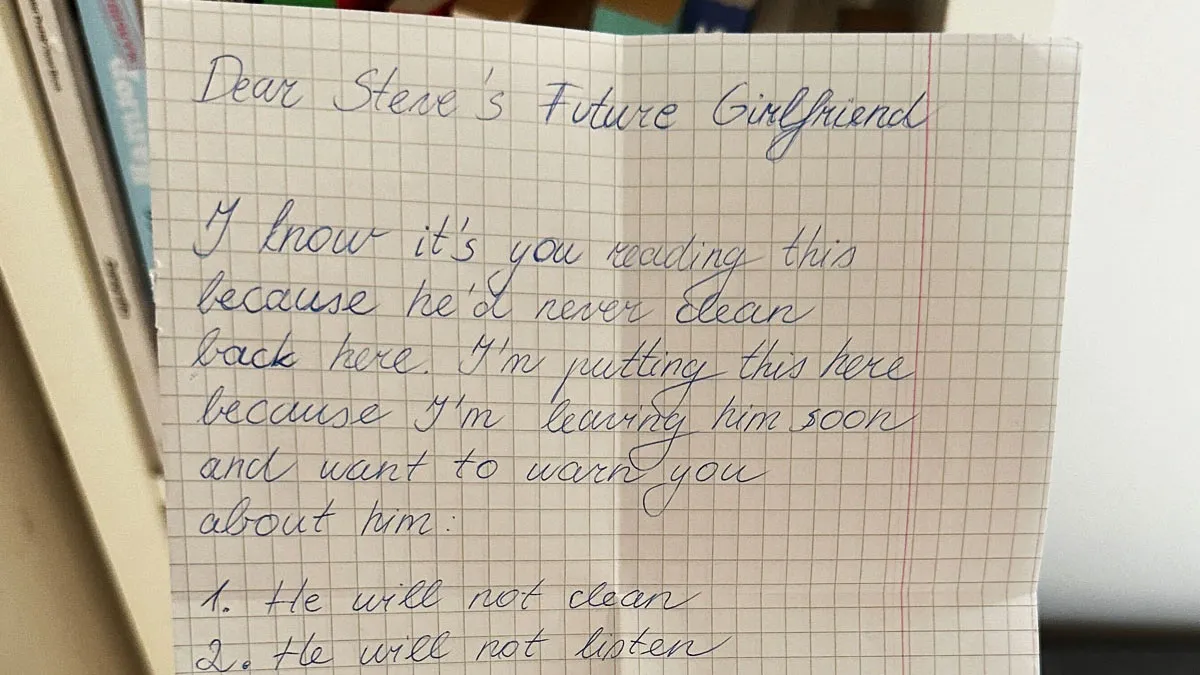 Dear Steve's Future Girlfriend
I know it's you reading this
because he'd never clean
back here. I'm putting this here
because I'm leaving him soon
and want to warn you
about him:
1. He will not clean
2. He will not listen